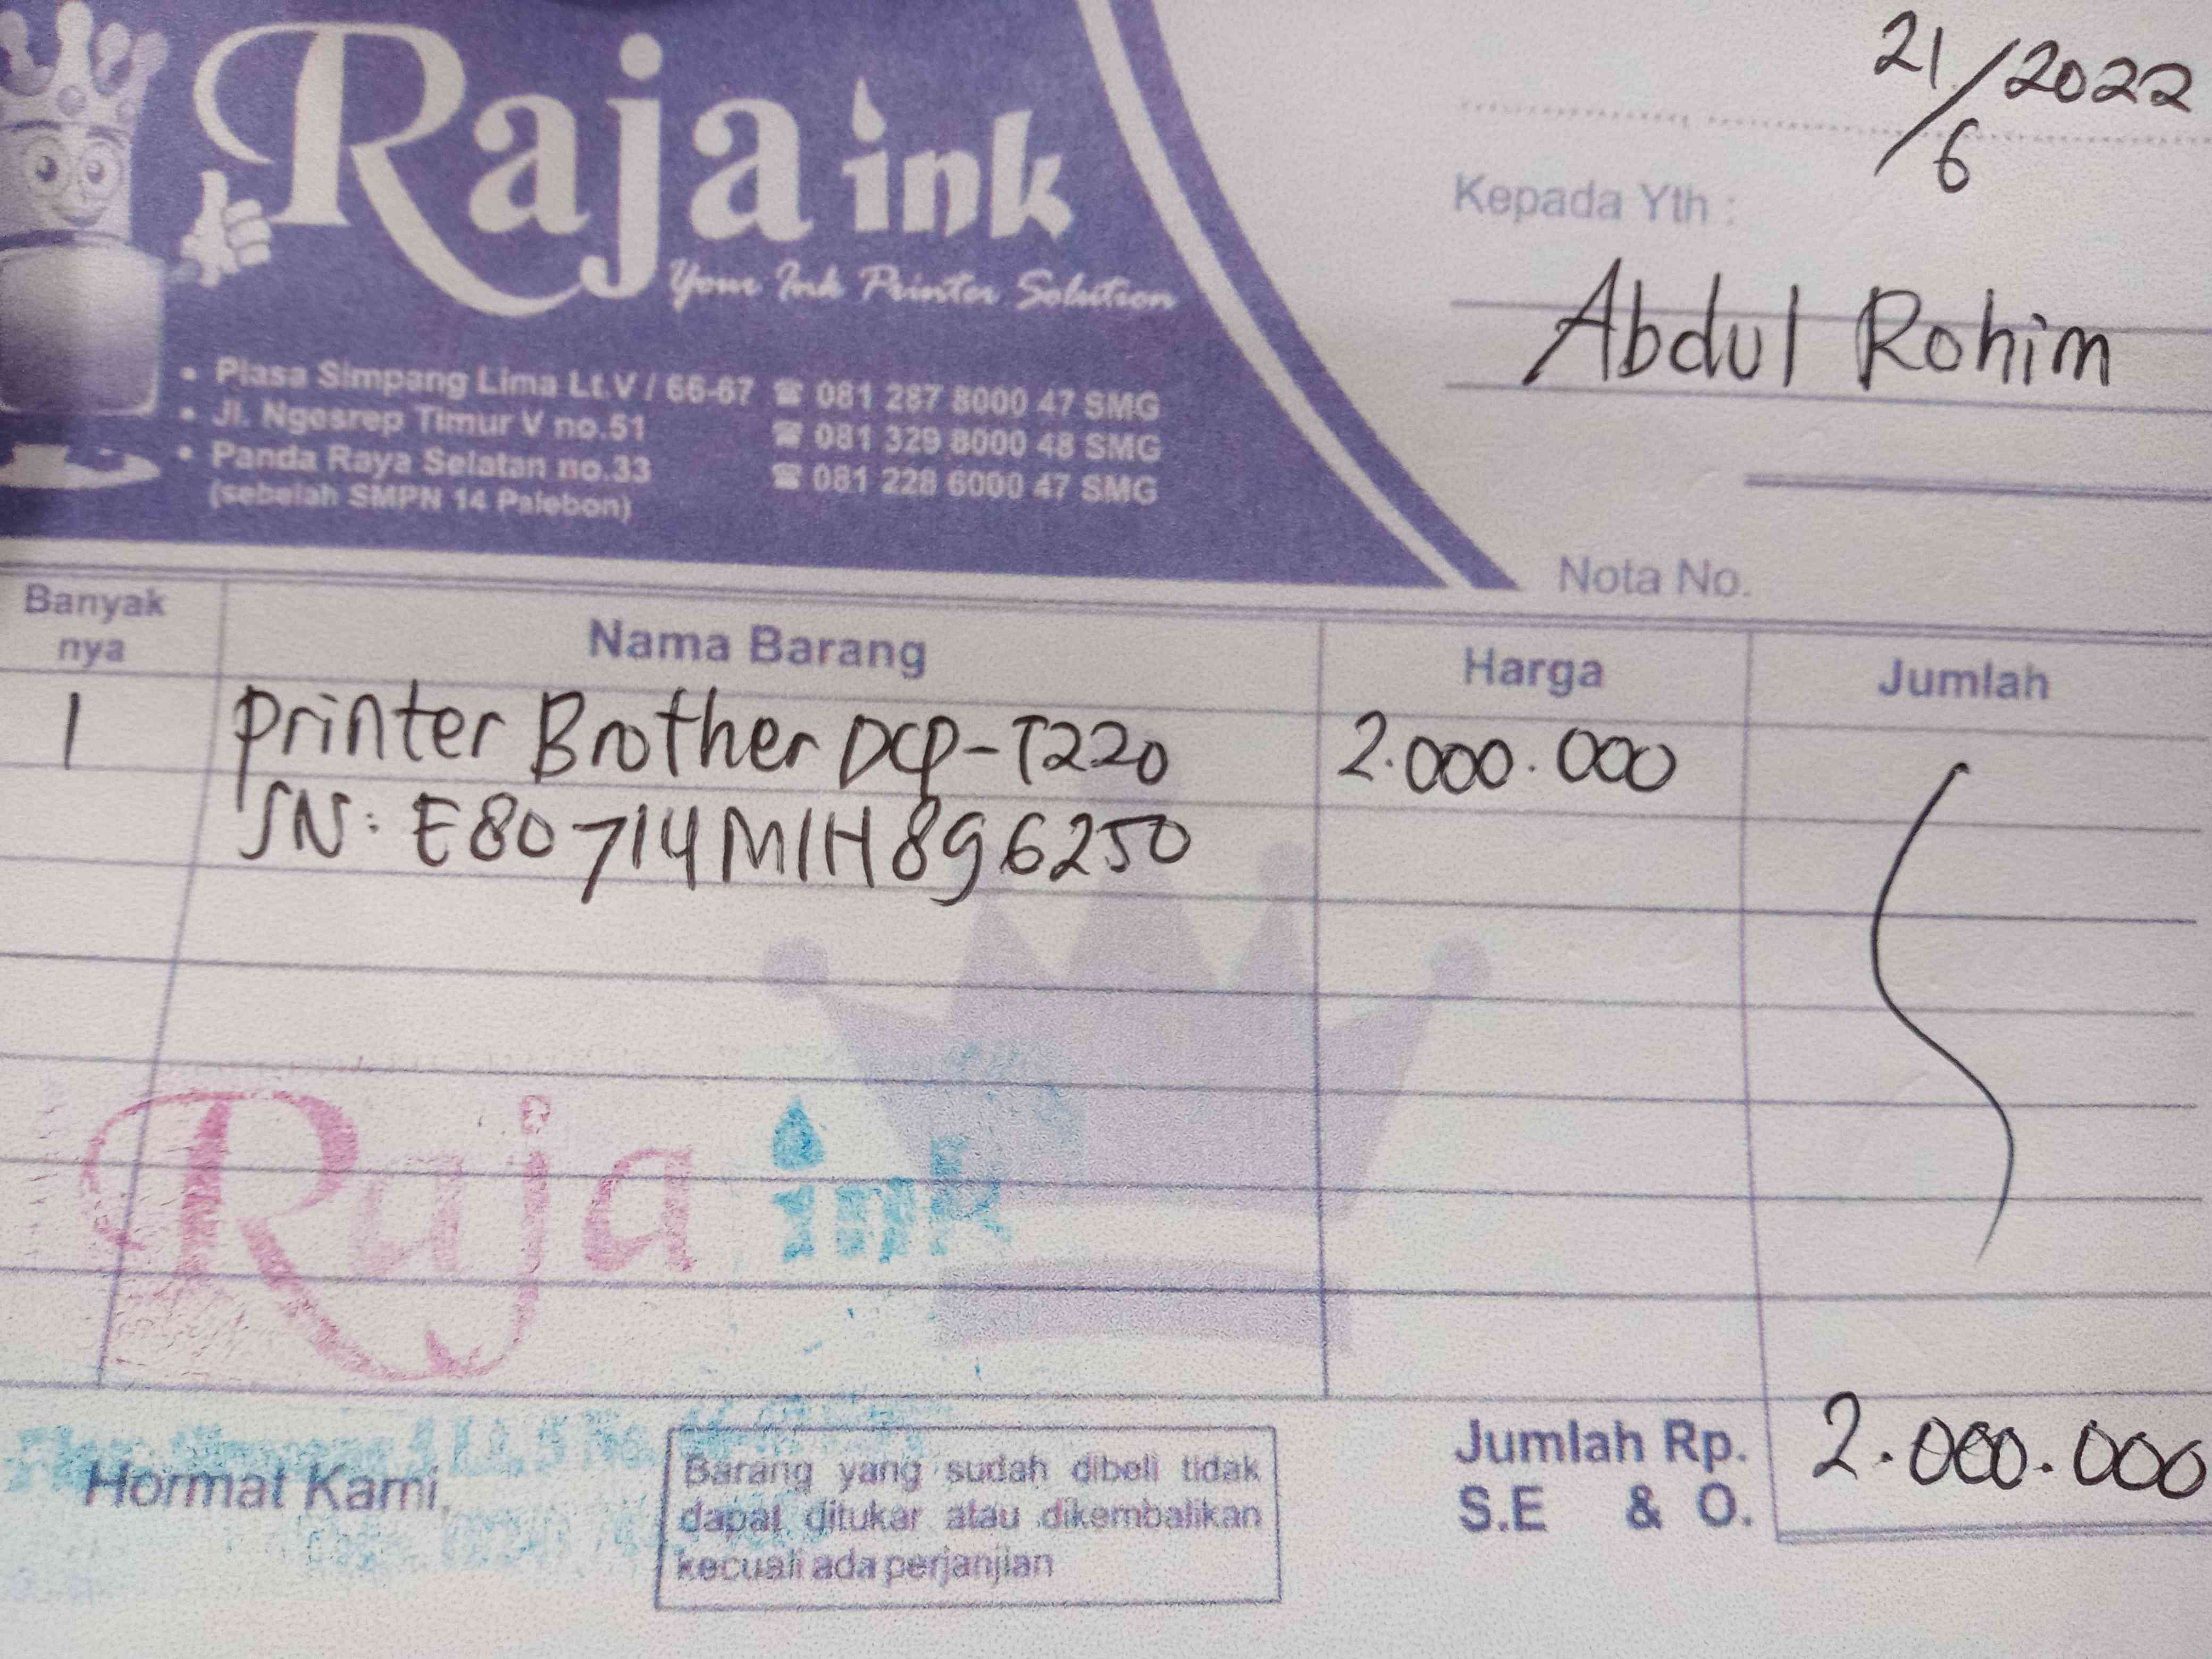 Raja ink
Your Ink Printer Solution
• Plasa Simpang Lima Lt.V / 66-67 ☎ 081 287 8000 47 SMG
• Jl. Ngesrep Timur V no.51 ☎ 081 329 8000 48 SMG
• Panda Raya Selatan no.33 ☎ 081 228 6000 47 SMG
(sebelah SMPN 14 Palebon)
21/6/2022
Kepada Yth :
Abdul Rohim
Nota No.
Banyak nya Nama Barang Harga Jumlah
1 Printer Brother DCP-T220 2.000.000
SN: E80714M1H896250
Raja ink
Hormat Kami,
Barang yang sudah dibeli tidak
dapat ditukar atau dikembalikan
kecuali ada perjanjian
Jumlah Rp. 2.000.000
S.E & O.